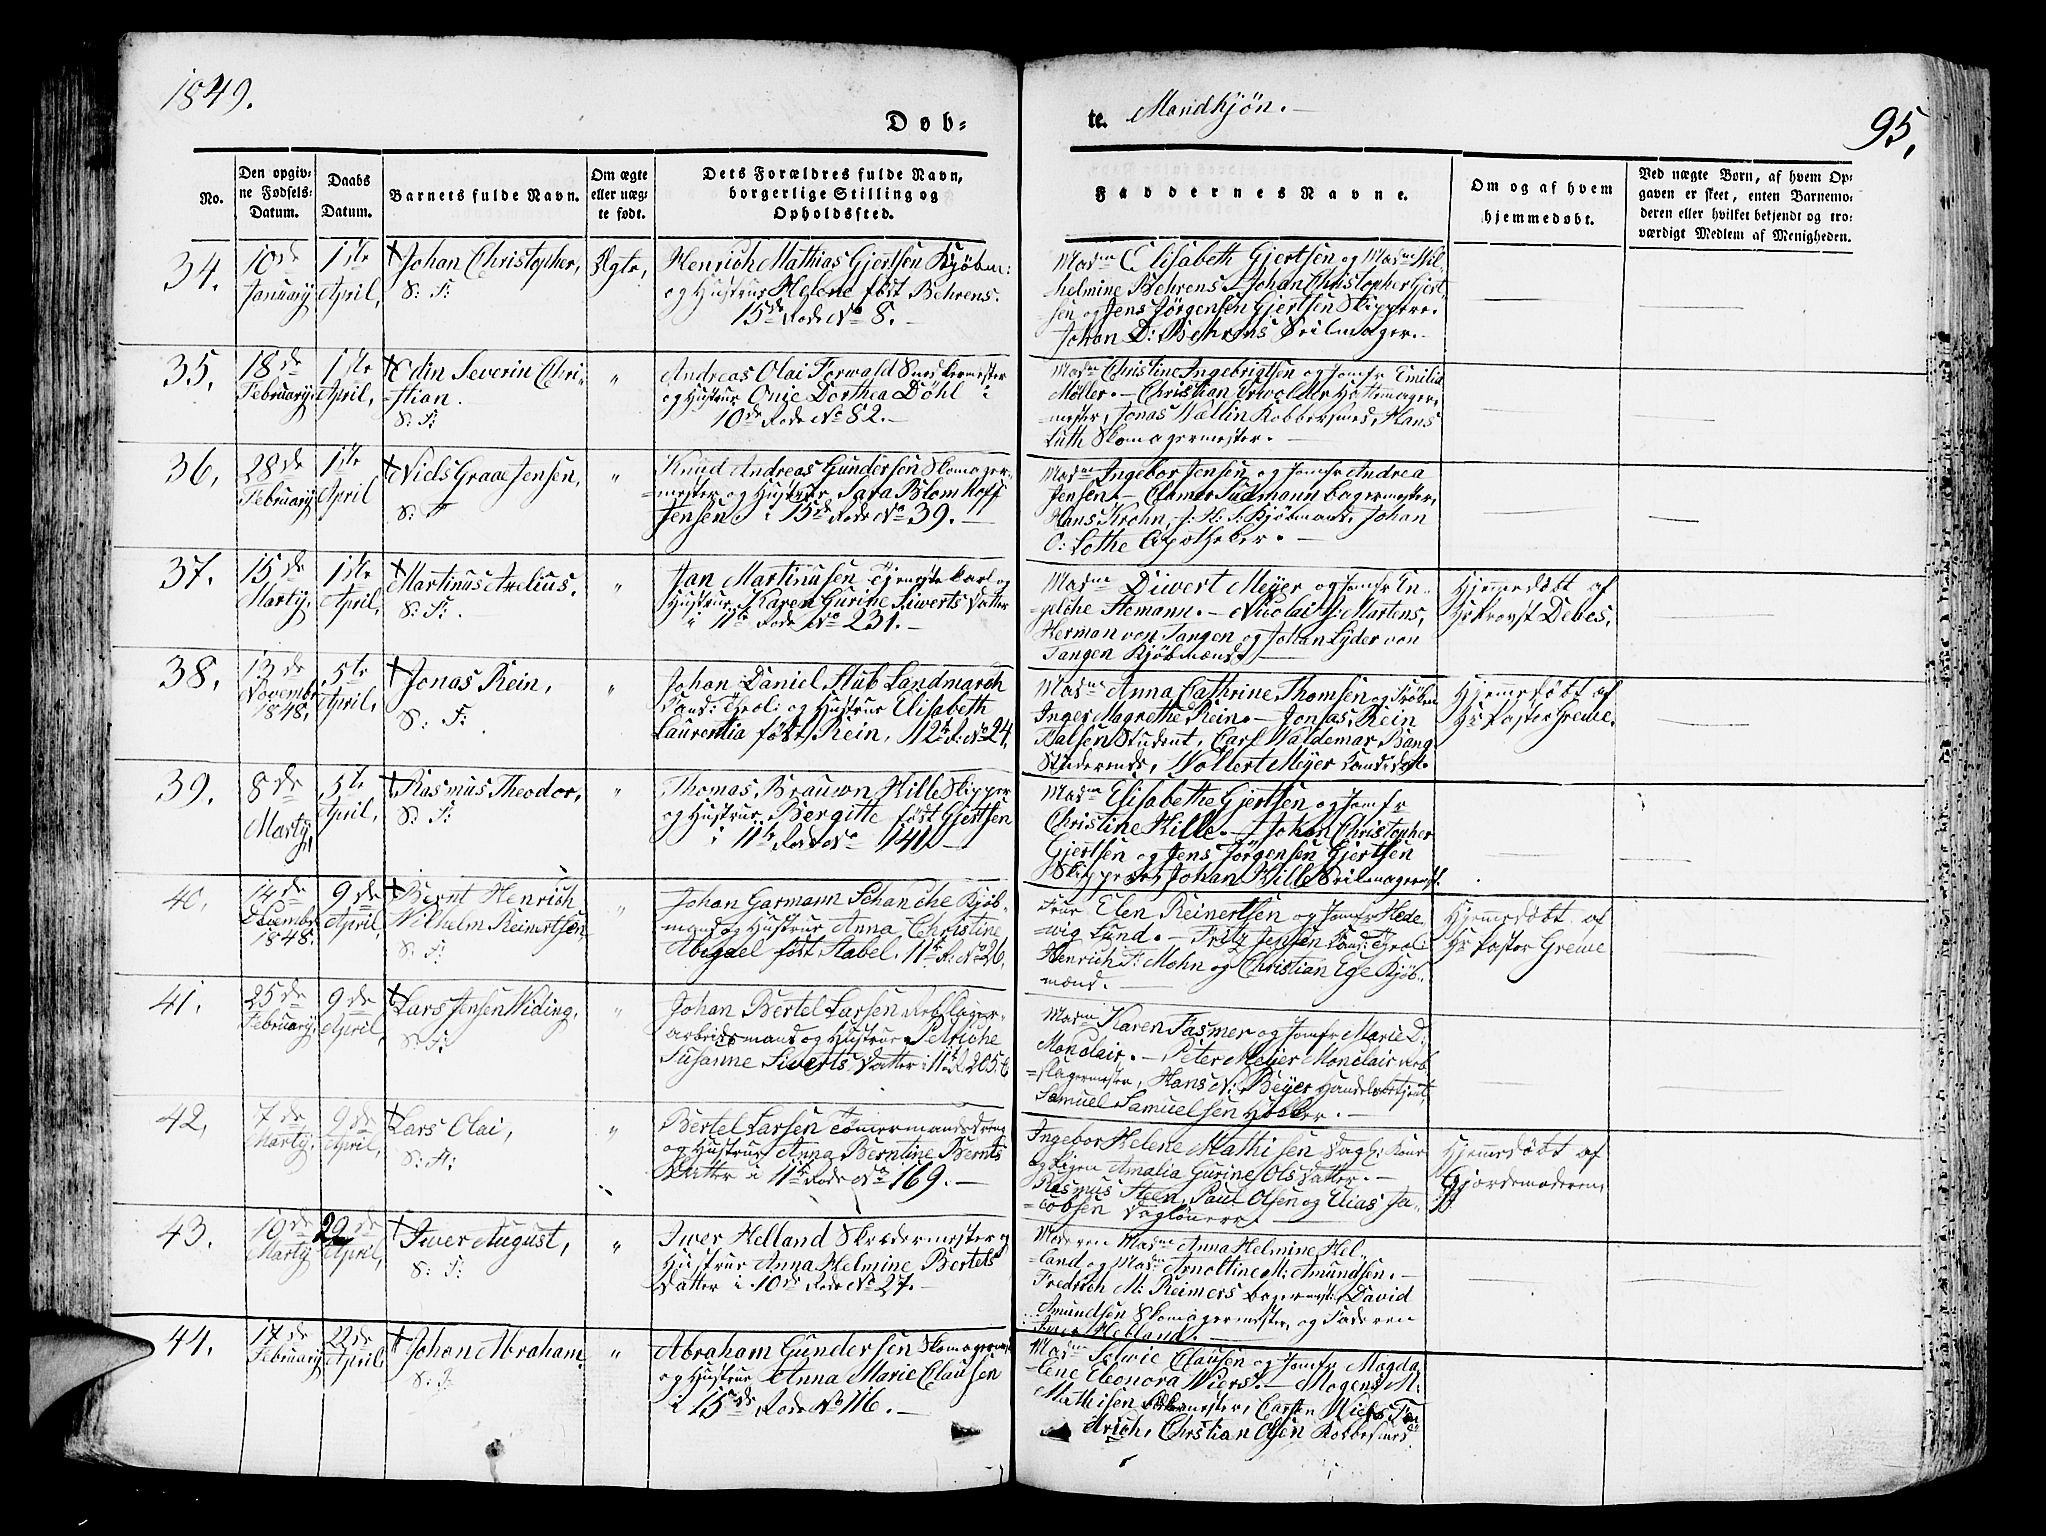 1849.
Døb-
te. Mandkjøn.
95,
No.
Den opgiv-
ne Fødsels-
Datum.
Daabs
Datum.
Barnets fulde Navn.
Om ægte
eller uæg-
te født.
Dets Forældres fulde Navn,
borgerlige Stilling og
Opholdssted.
Faddernes Navne.
Om og af hvem
hjemmedøbt.
Ved uægte Børn, af hvem Op-
gaven er skeet, enten Barnemo-
deren eller hvilket bekjendt og tro-
værdigt Medlem af Menigheden.
34.
10de
January,
1ste
April,
Johan Christopher,
S: F:
Ægte,
Henrich Mathias Gjertsen Kjøbm:
og Hustrue Helene født Behrens.
15de Rode No 8.
Madme Elisabeth Gjertsen og Madme Wil-
helmine Behrens. Johan Christopher Gjert-
sen og Jens Jørgensen Gjertsen Skippere.
Johan D: Behrens Seilmager.
35.
18de
February,
1ste
April,
Odin Severin Chri-
-stian.
S: F:
"
Andreas Olai Forwald Snedkermester
og Hustrue Onie Dorthea Døhl i
10de Rode No 82.
Madme Christine Ingebrigtsen og Jomfr Emilia
Møller. Christian Hattemager-
-mester, Jonas Wallin Kobbersmed, Hans
Luth Skomagermester.
36,
28de
February,
1ste
April
Niels Graae Jensen,
S: F
"
Knud Andreas Gundersen Skomager-
-mester og Hustrue Sara Blomhoff
Jensen i 15de Rode No 39.
Madme Ingebor Jensen og Jomfr Andrea
Jensen. Clamer Südmann Bagermester,
Hans Krohn, J: H: S: Kjøbmand, Johan
C: Lothe Apotheker.
37.
15de
Marty,
1ste
April,
Martinus Arelius.
S: F:
"
Jan Martinusen Tjenestekarl og
Hustrue Karen Gurine Siwerts Datter
i 11te Rode No 231.
Madme Diwert Meyer og Jomfr En-
-gelche Stemann. Nicolai J: Martens,
Herman von Tangen og Johan Lyder von
Tangen Kjøbmænd.
Hjemmedøbt af
Hr Provst Debes.
38,
13de
Novembr
1848.
5te
April,
Jonas Rein,
S: F:
"
Johan Daniel Stub Landmarch
Cand: Theol: og Hustrue Elisabeth
Laurentia født Rein, 12te R: No 24,
Madme Anna Cathrine Thomsen og Frøken
Inger Magrethe Rein. Jonas Rein
Student, Carl Waldemar Bang
Studerende, Wollert Meyer Candidat.
Hjemmedøbt af
Hr Pastor Greiwe.
39.
8de
Marty,
5te
April,
Rasmus Theodor,
S: F:
"
Thomas Brauwn Hille Skipper
og Hustrue Bergitte født Gjertsen
i 11te Rode No 141.
Madme Elisabethe Gjertsen og Jomfr
Christine Hille. Johan Christopher
Gjertsen og Jens Jørgensen Gjertsen
Skippere, Johan Hille Seilmagerm.
40.
14de
Decembr
1848.
9de
April,
Bernt Henrich
Wilhelm Reinertsen,
S: F:
"
Johan Garmann Schanche Kjøb-
mand og Hustrue Anna Christine
Abigael født Aabel, 11te R. No 26.
Frue Elen Reinertsen og Jomfr Hede-
-wig Lund. Fritz Jensen Cand: Theol:
Henrich F: Mohn og Christian Ege Kjøb-
mænd.
Hjemmedøbt af
Hr Pastor Greiwe
41.
25de
February,
9de
April
Lars Jensen Widing,
S: F:
"
Johan Bertel Larsen Rebslager-
arbeidsmand og Hustrue Petriche
Susanne Siwerts Datter i 11te R 205.
Madme Karen Fasmer og Jomfr Marie D:
Monclair. Peter Meyer Monclair Reb
-slagermester, Hans N: Beyer Handelsbetjent,
Samuel Samuelsen Høker.
42,
7de
Marty,
9de
April,
Lars Olai,
S: F:
"
Bertel Larsen Tømermandsdreng
og Hustrue Anna Berntine Bernts
Datter i 11te Rode No 169.
Ingebor Helene Mathisen Dagl: Kone
og Pigen Amalia Gurine Ols Datter.
Rasmus Steen, Paul Olsen og Elias Ja-
-cobsen Daglønere.
Hjemmedøbt af
Gjordemoderen
43.
19de
Marty
29de
April,
Iwer August,
S: F:
"
Iwer Helland Skrædermester og
Hustrue Anna Helmine Bertels
Datter i 10de Rode No 27.
Moderen Madme Anna Helmine Hel-
-land og Madme Arnoltine M: Amundsen.
Fredrich M: Reimers Bagermst: David
Amundsen Skomagermester, og Faderen
Iwer Helland.
44.
17de
February
22de
April,
Johan Abraham
S: F
"
Abraham Gundersen Skomagermest
og Hustrue Anna Marie Clausen
i 15de Rode No 116.
Madme Clausen og Jomfr Magda
-lene Eleonora Wiers. Mogens M:
Mathisen Carsten
Christian Olsen Kobbersmed.